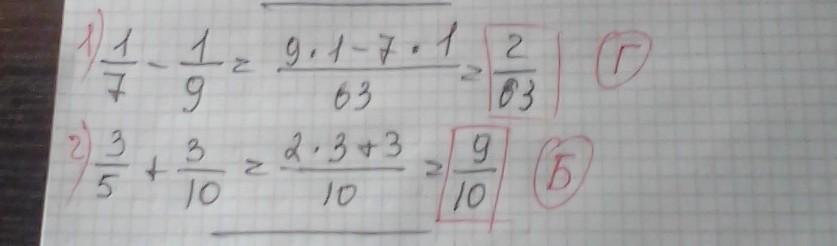 1) 1/7 - 1/9 = (9·1-7·1)/63 = 2/63 Г
2) 3/5 + 3/10 = (2·3+3)/10 = 9/10 Б